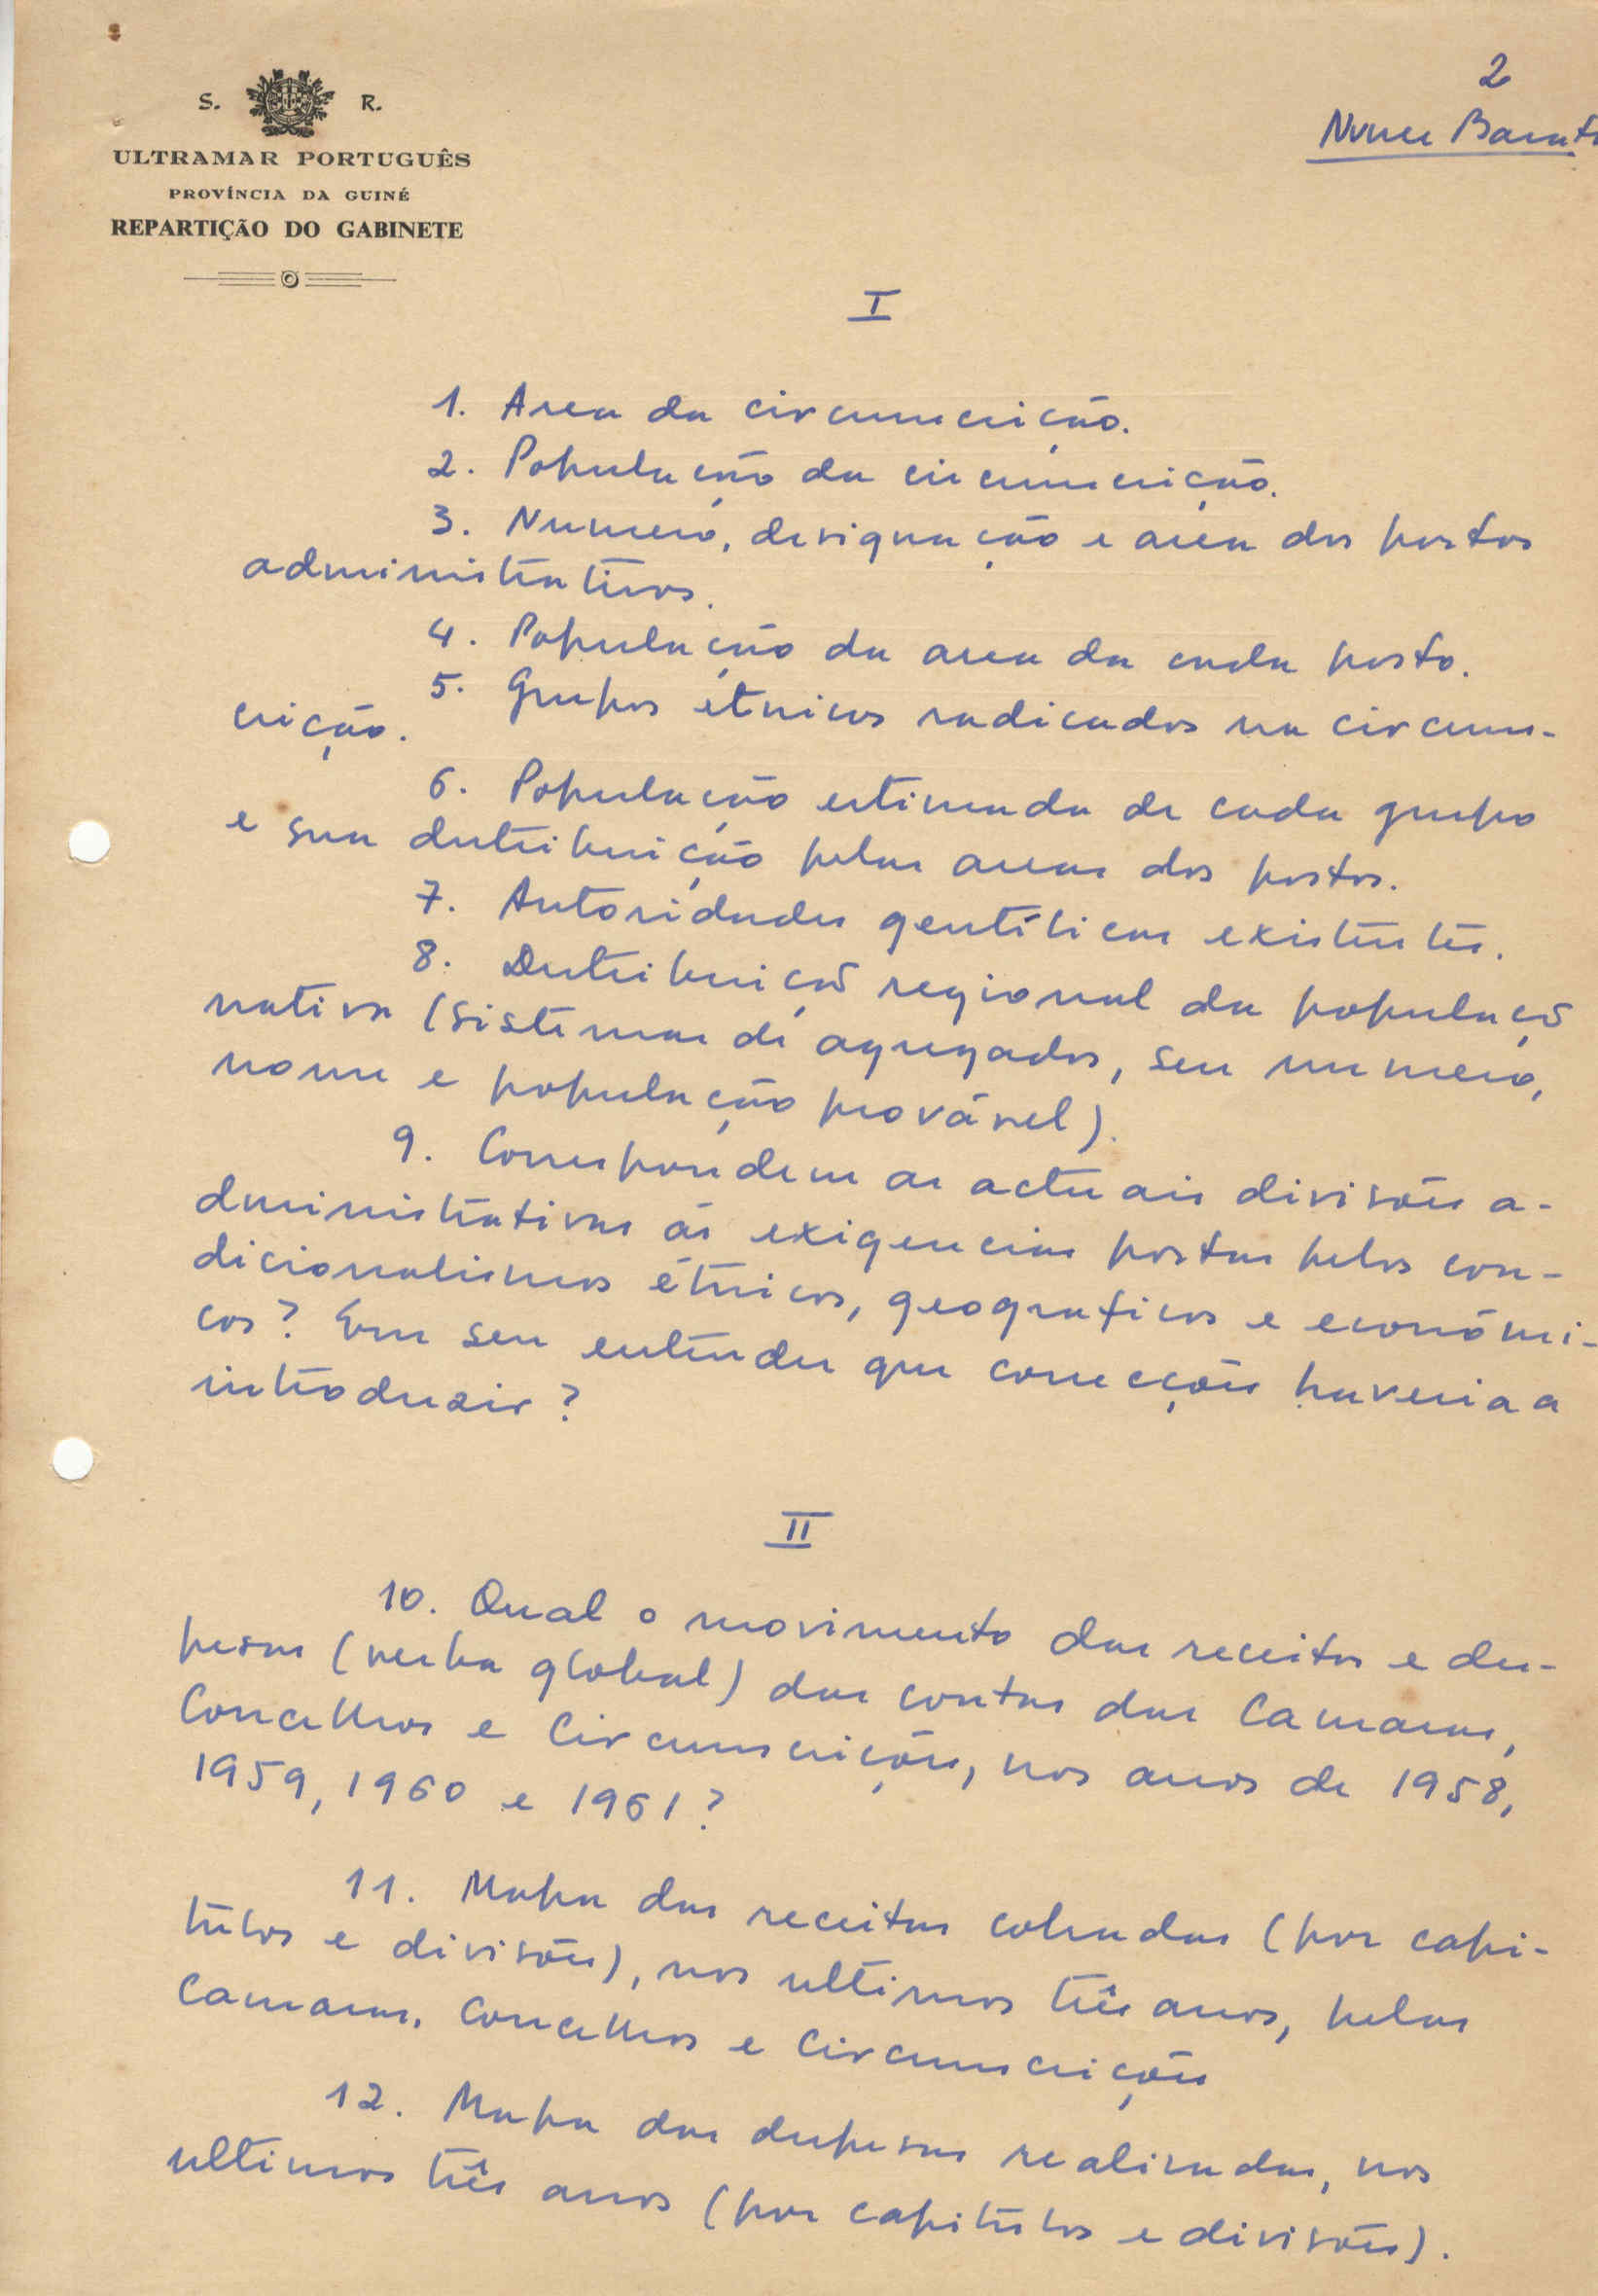 2
Nunes Barata
S. R.
ULTRAMAR PORTUGUÊS
PROVÍNCIA DA GUINÉ
REPARTIÇÃO DO GABINETE
I
1. Area da circunscrição.
2. População da circunscrição.
3. Numero, designação e area dos postos
administrativos.
4. População da area da cada posto.
5. Grupos étnicos radicados na circuns-
crição.
6. População estimada de cada grupo
e sua distribuição pelas areas dos postos.
7. Autoridades gentílicas existentes.
8. Distribuição regional da população
nativa (sistemas de agregados, seu numero,
nome e população provável).
9. Correspondem as actuais divisões a-
dministrativas ás exigencias postas pelos con-
dicionalismos étnicos, geograficos e económi-
cos? Em seu entender que correcções haveria a
introduzir?
II
10. Qual o movimento das receitas e des-
pesas (verba global) das contas das Camaras,
Concelhos e Circunscrições, nos anos de 1958,
1959, 1960 e 1961?
11. Mapa das receitas cobradas (por capi-
tulos e divisões), nos ultimos três anos, pelas
Camaras, Concelhos e Circunscrições
12. Mapa das despesas realisadas, nos
ultimos três anos (por capitulos e divisões).